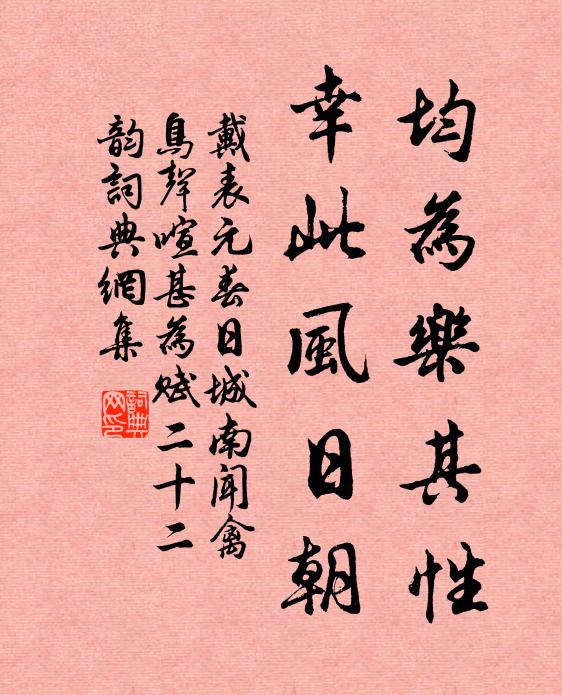 均為樂其性
幸此風日朝
戴表元春日城南聞禽
鳥聲喧甚為賦二十二
韵詞典網集
詞典
网印